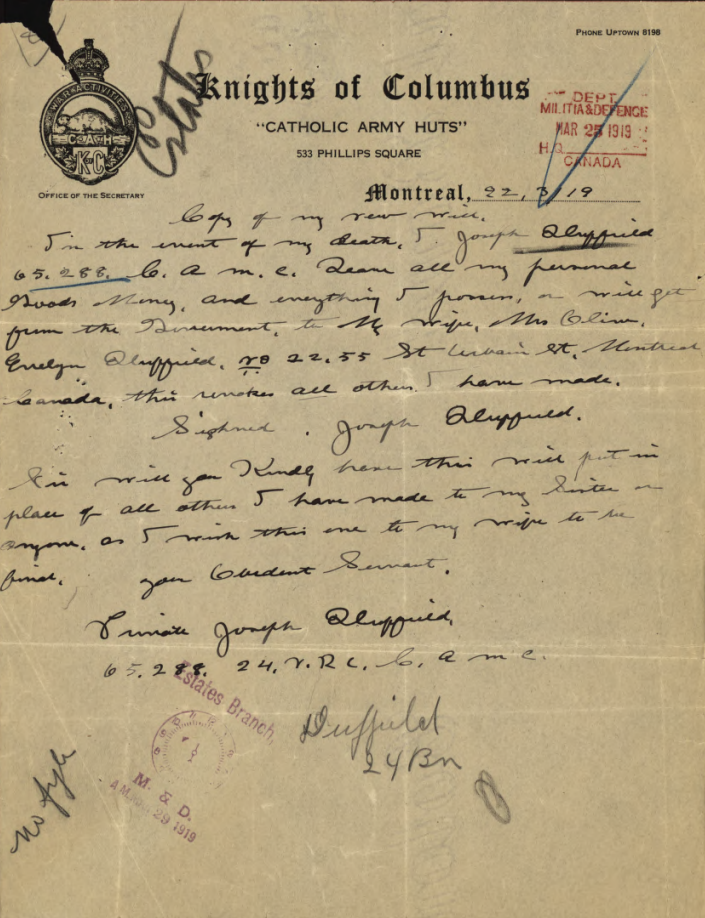 PHONE UPTOWN 8198
Estates
Knights of Columbus
WAR ACTIVITIES
C A H
K C
"CATHOLIC ARMY HUTS"
533 PHILLIPS SQUARE
DEPT.
MILITIA & DEFENCE
MAR 25 1919
H.Q.
CANADA
OFFICE OF THE SECRETARY
Montreal, 22, 3/19
Copy of my new will.
In the event of my death, I. Joseph Duffield
65.288. C. A. M. C. Leave all my personal
Goods Money, and everything I possess, or will get
from the Government, to My Wife, Mrs Olive.
Evelyn Duffield, No 22.55 St Urbain St, Montreal
Canada, this revokes all others I have made.
Sighned. Joseph Duffield.
Sir will you Kindly have this will put in
place of all others I have made to my Sister or
anyone, as I wish this one to my wife to be
final. your Obedient Servant.
Private Joseph Duffield,
65.288. 24. V. R. C. C. A. M. C.
Estates Branch,
M. & D.
A.M. 29 1919
Duffield
24 Bn
No fyle